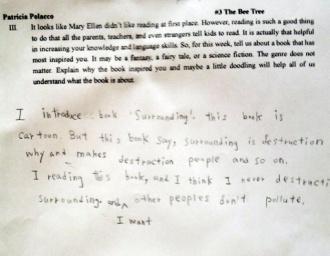 Patricia Polacco
#3 The Bee Tree
III. It looks like Mary Ellen didn't like reading at first place. However, reading is such a good thing
to do that all the parents, teachers, and even strangers tell kids to read. It is actually that helpful
in increasing your knowledge and language skills. So, for this week, tell us about a book that has
most inspired you. It may be a fantasy, a fairy tale, or a science fiction. The genre does not
matter. Explain why the book inspired you and maybe a little doodling will help all of us
understand what the book is about.
I introduce book 'Surrounding'. this book is
Cartoon. But this book says, surrounding is destruction
why and makes destraction people and so on.
I reading this book, and I think I never destructi
surrounding. and other peoples don't pollute,
I want